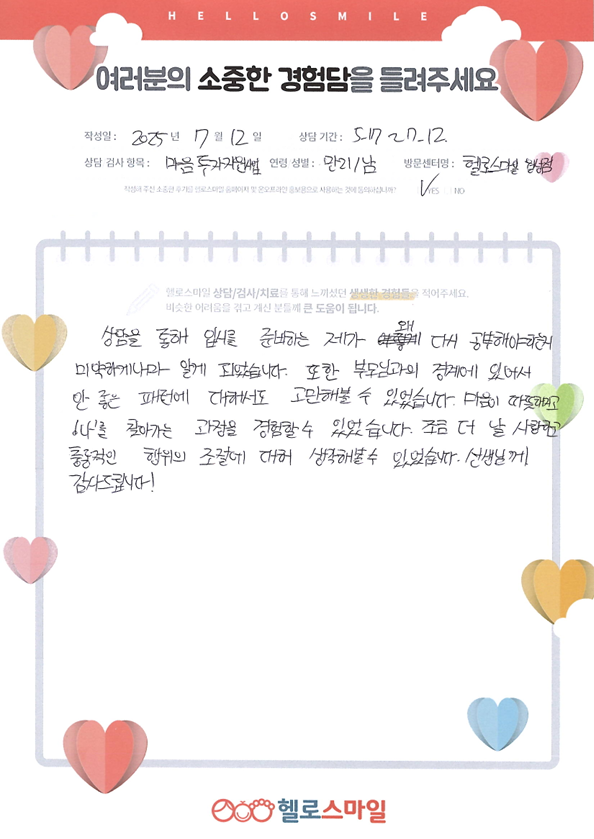 HELLOSMILE
여러분의 소중한 경험담을 들려주세요
작성일 : 2025 년 7 월 12 일 상담 기간 : 5.17 ~ 7.12
상담 검사 항목 : 마음투자지원사업 연령 성별 : 만21/남 방문센터명 : 헬로스마일 안성점
작성해 주신 소중한 후기를 헬로스마일 홈페이지 및 온오프라인 홍보용으로 사용하는 것에 동의하십니까? YES NO
헬로스마일 상담/검사/치료를 통해 느끼셨던 생생한 경험들을 적어주세요.
비슷한 어려움을 겪고 계신 분들께 큰 도움이 됩니다.
상담을 통해 입시를 준비하는 제가 왜 다시 공부해야하는지
미약하게나마 알게 되었습니다. 또한 부모님과의 경계에 있어서
안 좋은 패턴에 대해서도 고민해볼 수 있었습니다. 마음이 따뜻해지고
'나'를 찾아가는 과정을 경험할 수 있었습니다. 조금 더 날 사랑하고
충동적인 행위의 조절에 대해 생각해볼 수 있었습니다. 선생님께
감사드립니다!
헬로스마일